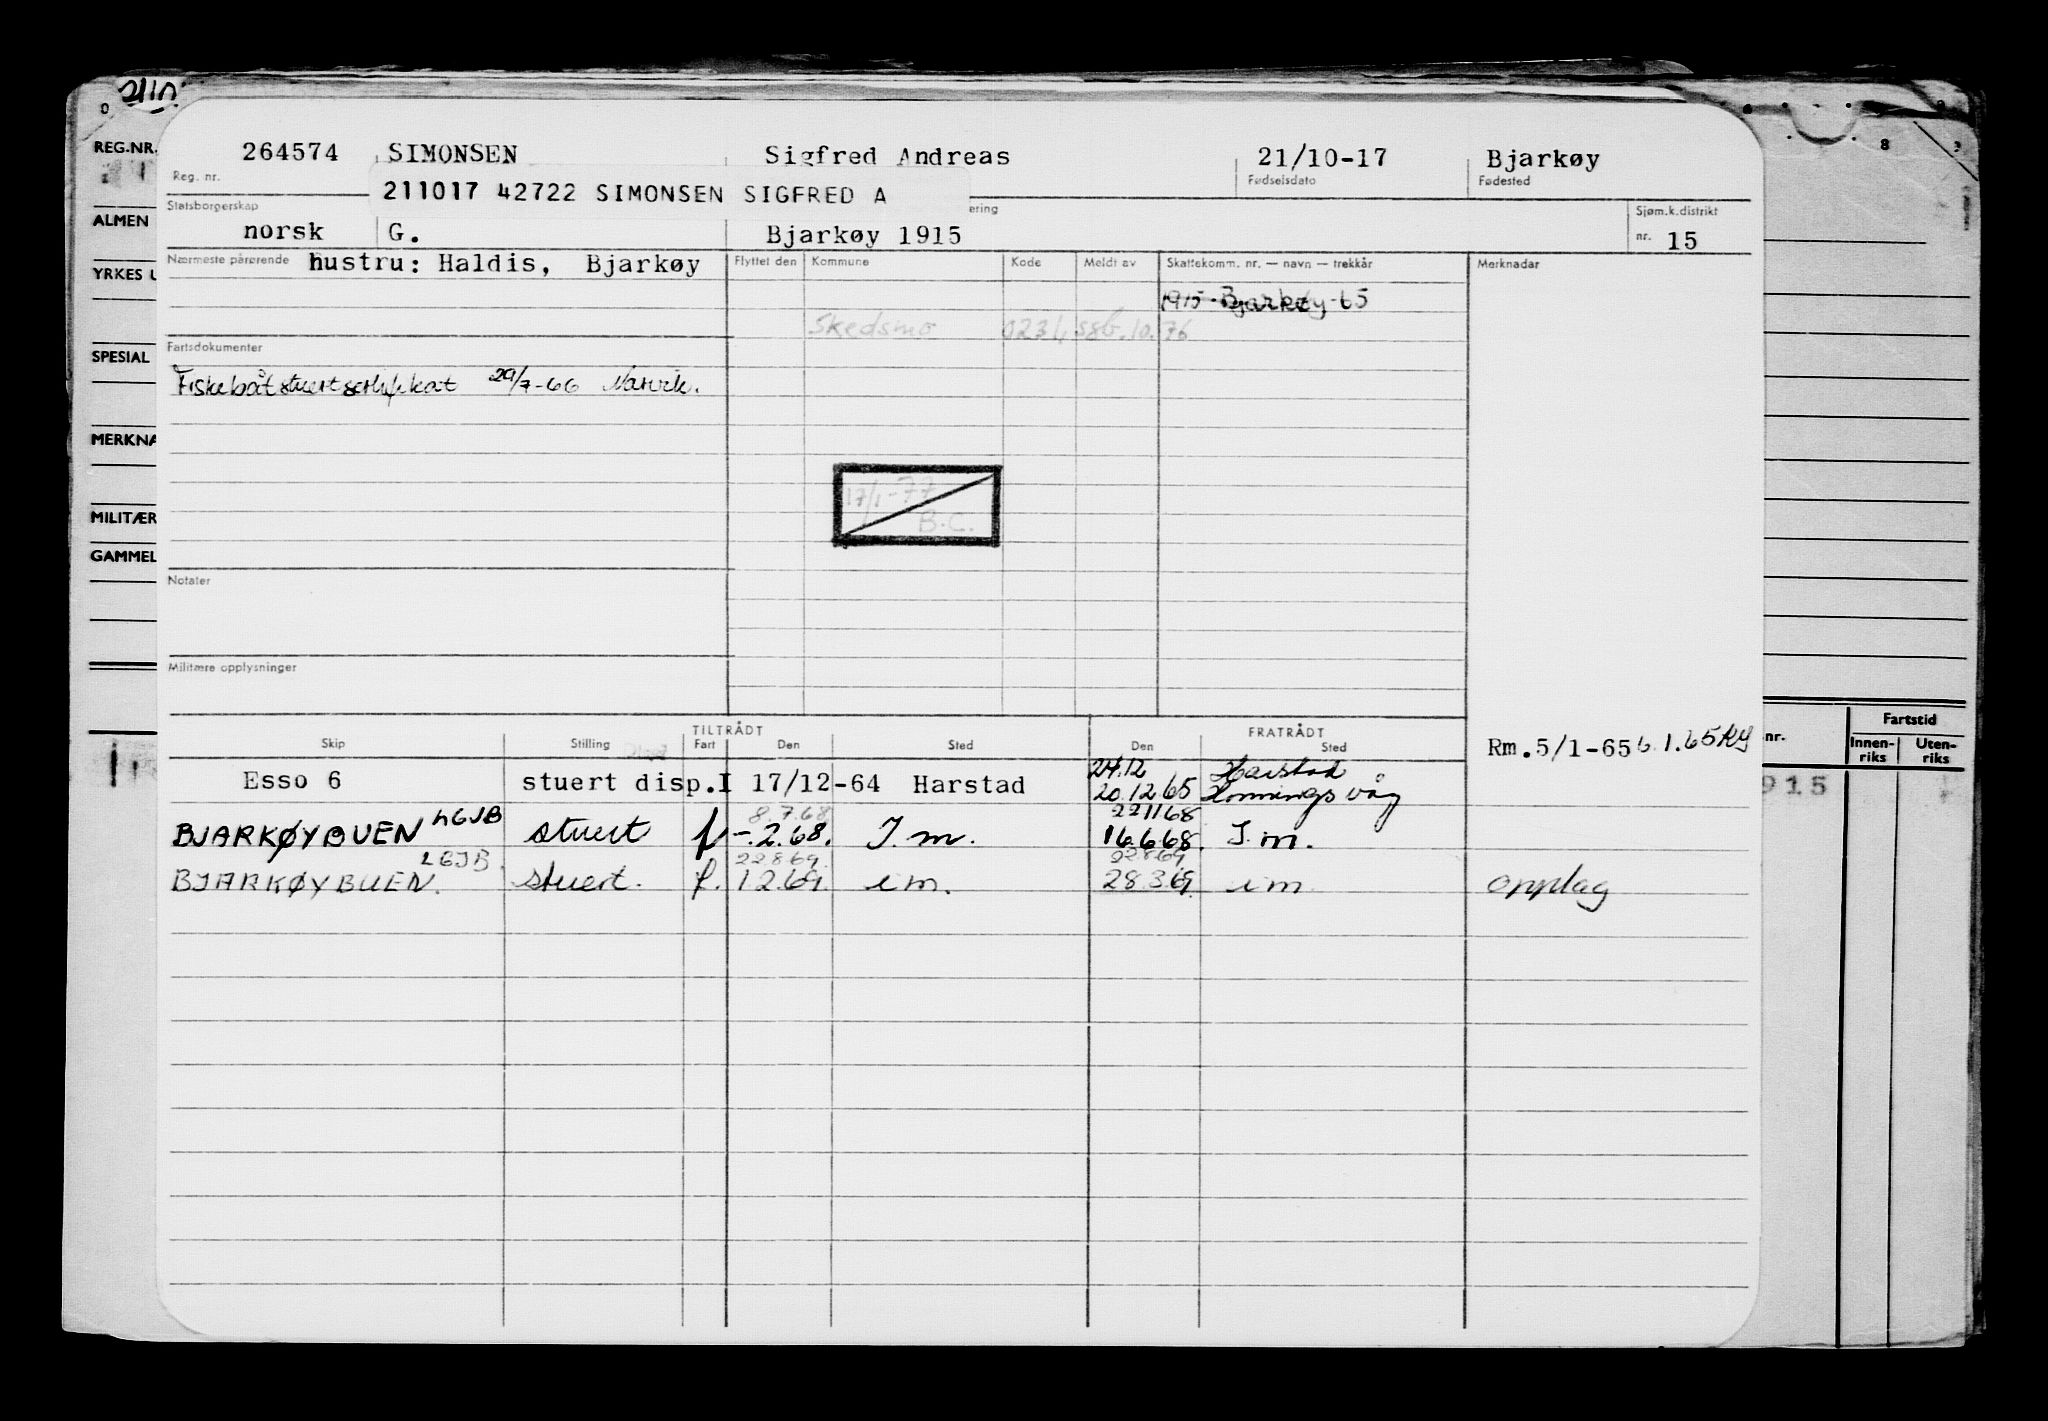 REG.NR.
264574 SIMONSEN Sigfred Andreas 21/10-17 Bjarkøy
Reg. nr. Fødselsdato Fødested
211017 42722 SIMONSEN SIGFRED A
ALMEN
Statsborgerskap ering Sjøm.k.distrikt
norsk G. Bjarkøy 1915 nr. 15
Nærmeste pårørende hustru: Haldis, Bjarkøy Flyttet den Kommune Kode Meldt av Skattekomm. nr. — navn — trekkår Merknadar
YRKES U
1915 Bjarkøy-65
Skedsmo 0231 10.76
SPESIAL
Fartsdokumenter
Fiskebåtstuertsertifikat 29/7-66 Narvik.
MERKNA
17/1-77
B.C.
MILITÆR
GAMMEL
Notater
Militære opplysninger
TILTRÅDT FRATRÅDT
Skip Stilling Fart Den Sted Den Sted
Rm.5/1-65 6.1.65 RY
nr. Fartstid
Innen-riks Uten-riks
24.12 Harstad
Esso 6 stuert disp.I 17/12-64 Harstad 20.12.65 Honningsvåg
915
LGJB 8.7.68 221168
BJARKØYBUEN stuert f -.2.68. I.m. 16.6.68. I.m.
LGJB 22869. 22869
BJARKØYBUEN. stuert. f. 1.2.69. i m. 28.3.69 i m opplag